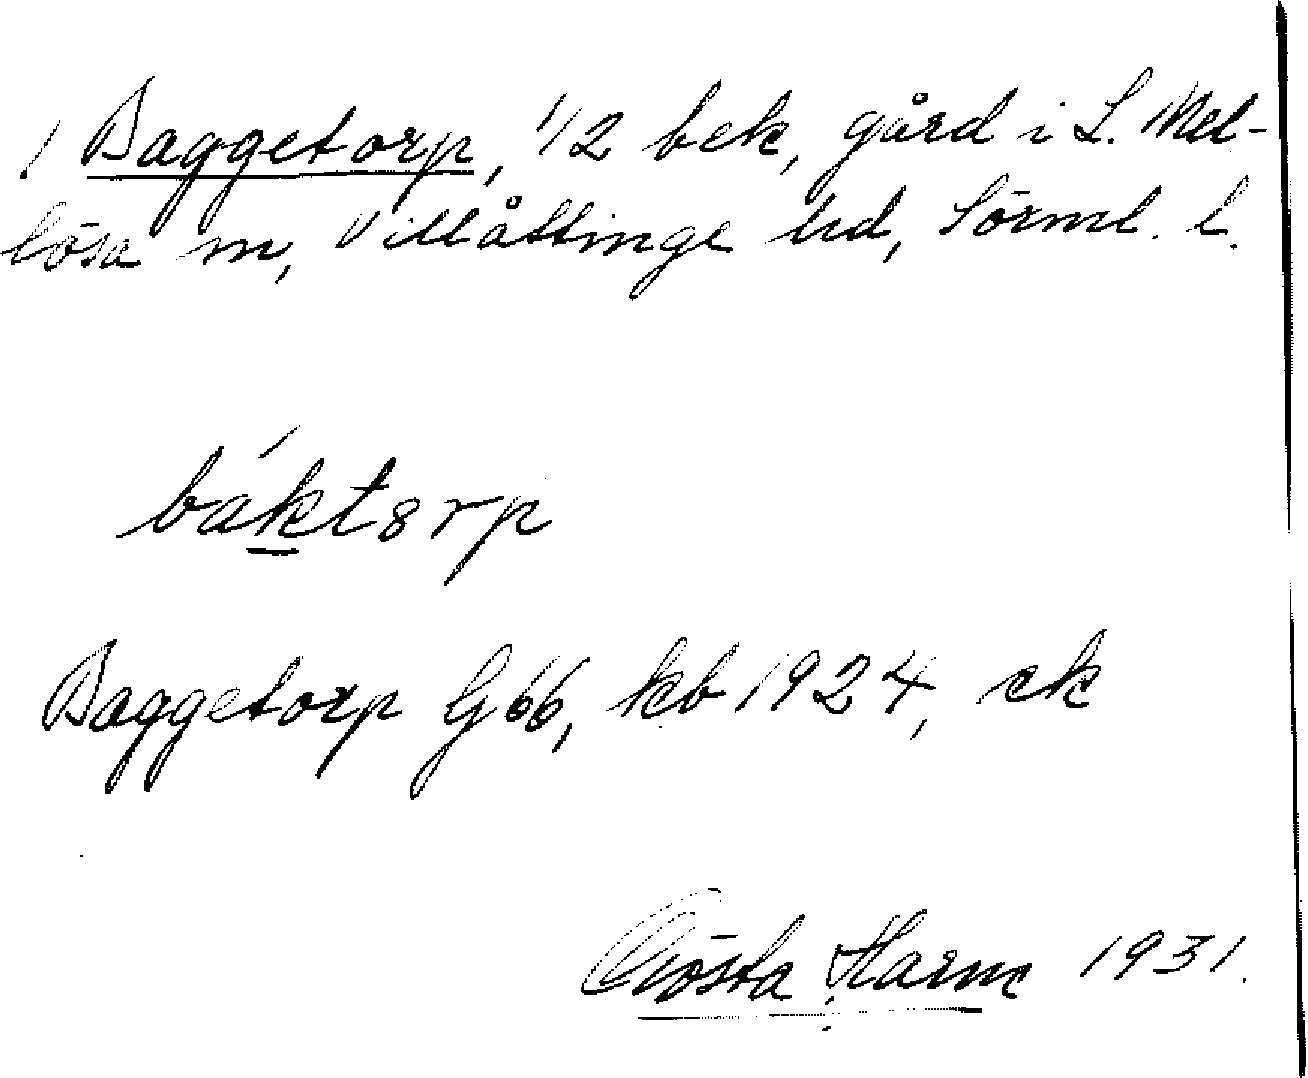 1 Baggetorp, 1/2 bek, gård i L. Mel-
lösa sn, Villåttinge hd, Sörml. l.
báktorp
Baggetorp G66, kb 1924, ek
Gösta Harm 1931.